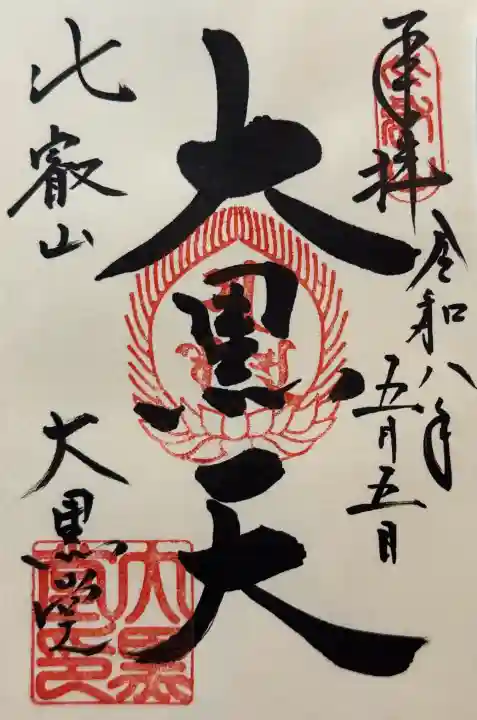 奉拝
令和八年
五月五日
大黒天
比叡山
大黒堂
大黒
堂印